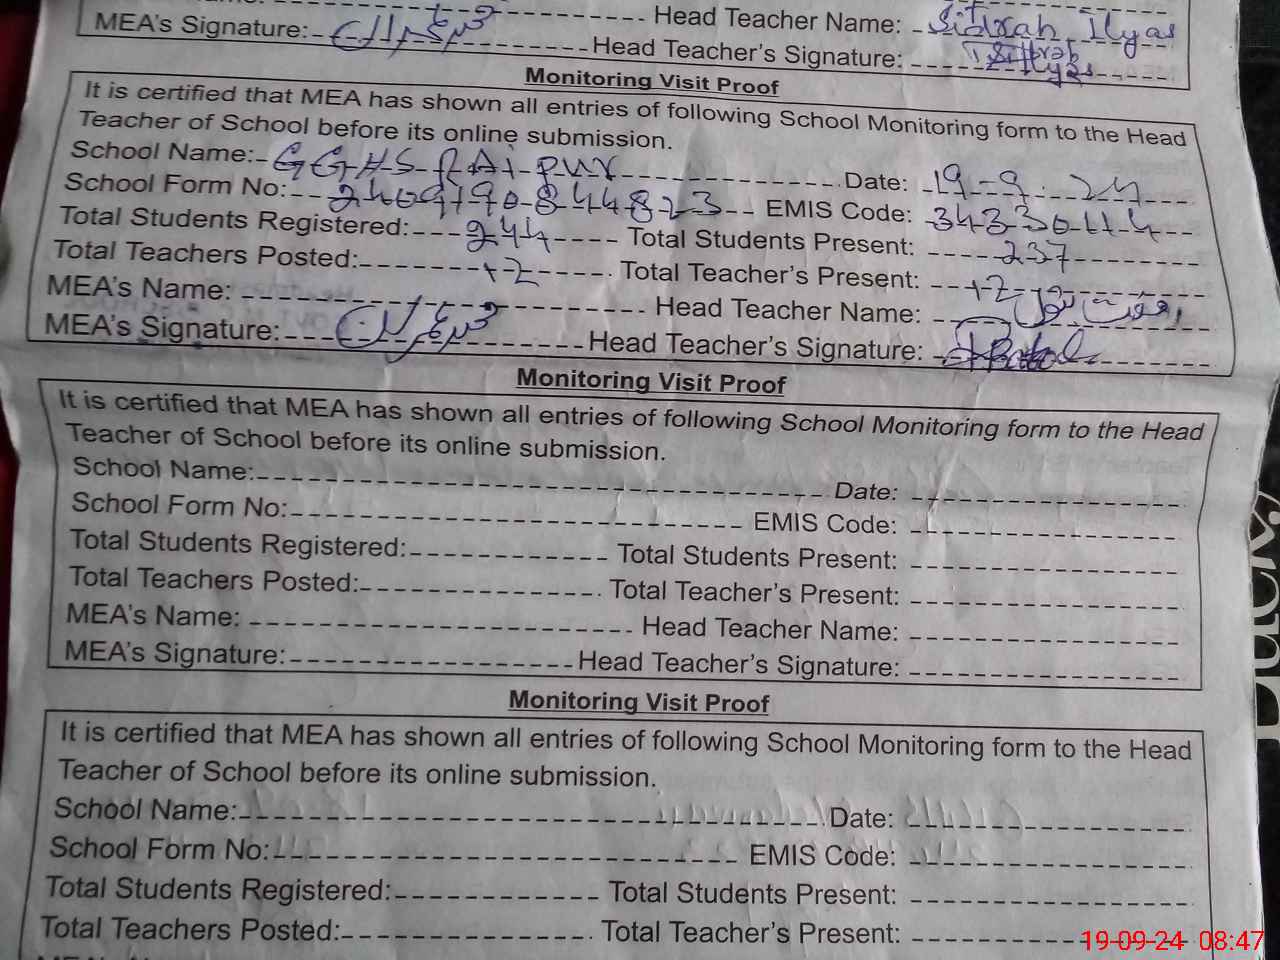 Head Teacher Name: Sidrah Ilyas
MEA's Signature: Head Teacher's Signature:
Monitoring Visit Proof
It is certified that MEA has shown all entries of following School Monitoring form to the Head
Teacher of School before its online submission.
School Name: GGHS RAI PUR Date: 19-9-24
School Form No: 2409190844823 EMIS Code: 34330114
Total Students Registered: 244 Total Students Present: 237
Total Teachers Posted: +2 Total Teacher's Present: +2
MEA's Name: Head Teacher Name:
MEA's Signature: Head Teacher's Signature:
Monitoring Visit Proof
It is certified that MEA has shown all entries of following School Monitoring form to the Head
Teacher of School before its online submission.
School Name: Date:
School Form No: EMIS Code:
Total Students Registered: Total Students Present:
Total Teachers Posted: Total Teacher's Present:
MEA's Name: Head Teacher Name:
MEA's Signature: Head Teacher's Signature:
Monitoring Visit Proof
It is certified that MEA has shown all entries of following School Monitoring form to the Head
Teacher of School before its online submission.
School Name: Date:
School Form No: EMIS Code:
Total Students Registered: Total Students Present:
Total Teachers Posted: Total Teacher's Present:
19-09-24 08:47